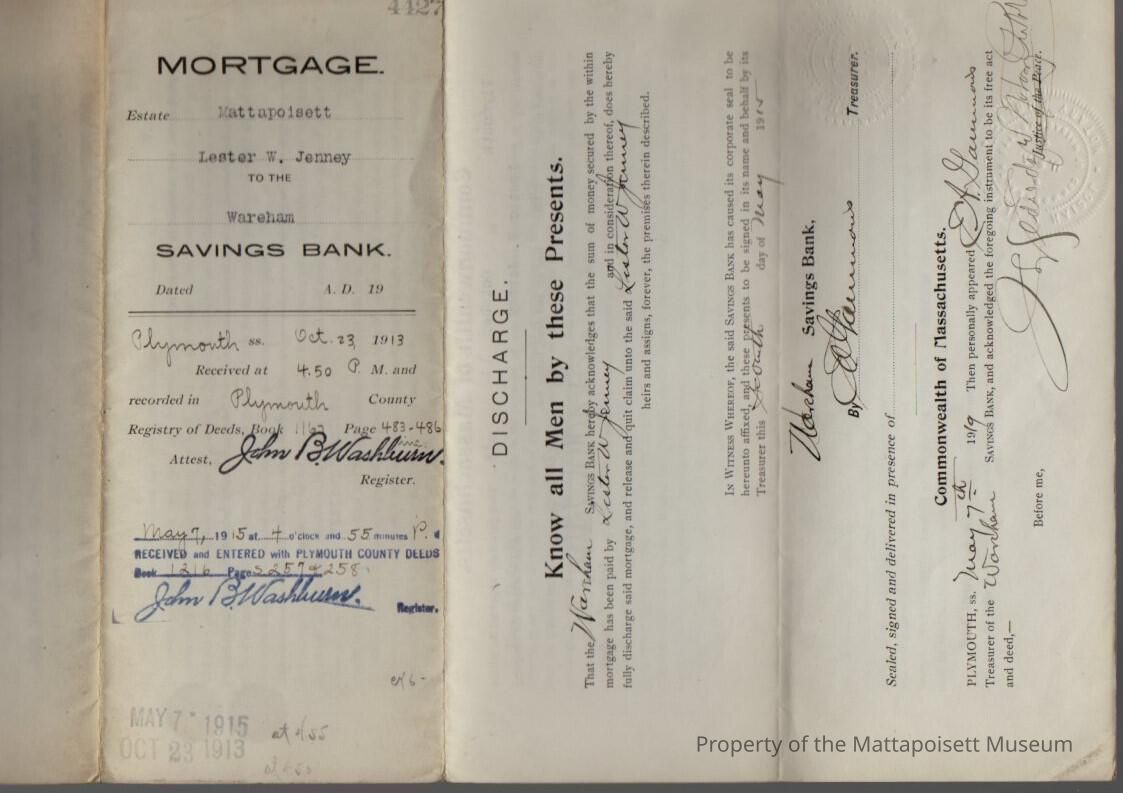 4427
MORTGAGE.
Estate Mattapoisett
Lester W. Jenney
TO THE
Wareham
SAVINGS BANK.
Dated A. D. 19
Plymouth ss. Oct. 23 1913
Received at 4.50 P. M. and
recorded in Plymouth County
Registry of Deeds, Book 1162 Page 483-486
Attest, John B. Washburn.
Register.
May 7, 1915 at 4 o'clock and 55 minutes P. M
RECEIVED and ENTERED with PLYMOUTH COUNTY DEEDS
Book 1216 Pages 257 & 258
John B. Washburn.
Register.
MAY 7 - 1915
OCT 23 1913
at 4/55
DISCHARGE.
Know all Men by these Presents.
That the Wareham SAVINGS BANK hereby acknowledges that the sum of money secured by the within
mortgage has been paid by Lester W Jenney and in consideration thereof, does hereby
fully discharge said mortgage, and release and quit claim unto the said Lester W Jenney
heirs and assigns, forever, the premises therein described.
IN WITNESS WHEREOF, the said SAVINGS BANK has caused its corporate seal to be
hereunto affixed, and these presents to be signed in its name and behalf by its
Treasurer this seventh day of May 1915
Wareham Savings Bank,
By Treasurer.
Sealed, signed and delivered in presence of
Commonwealth of Massachusetts.
PLYMOUTH, ss. May 7th 19 Then personally appeared
Treasurer of the Wareham SAVINGS BANK, and acknowledged the foregoing instrument to be its free act
and deed,—
Before me,
Justice of the Peace.
Property of the Mattapoisett Museum